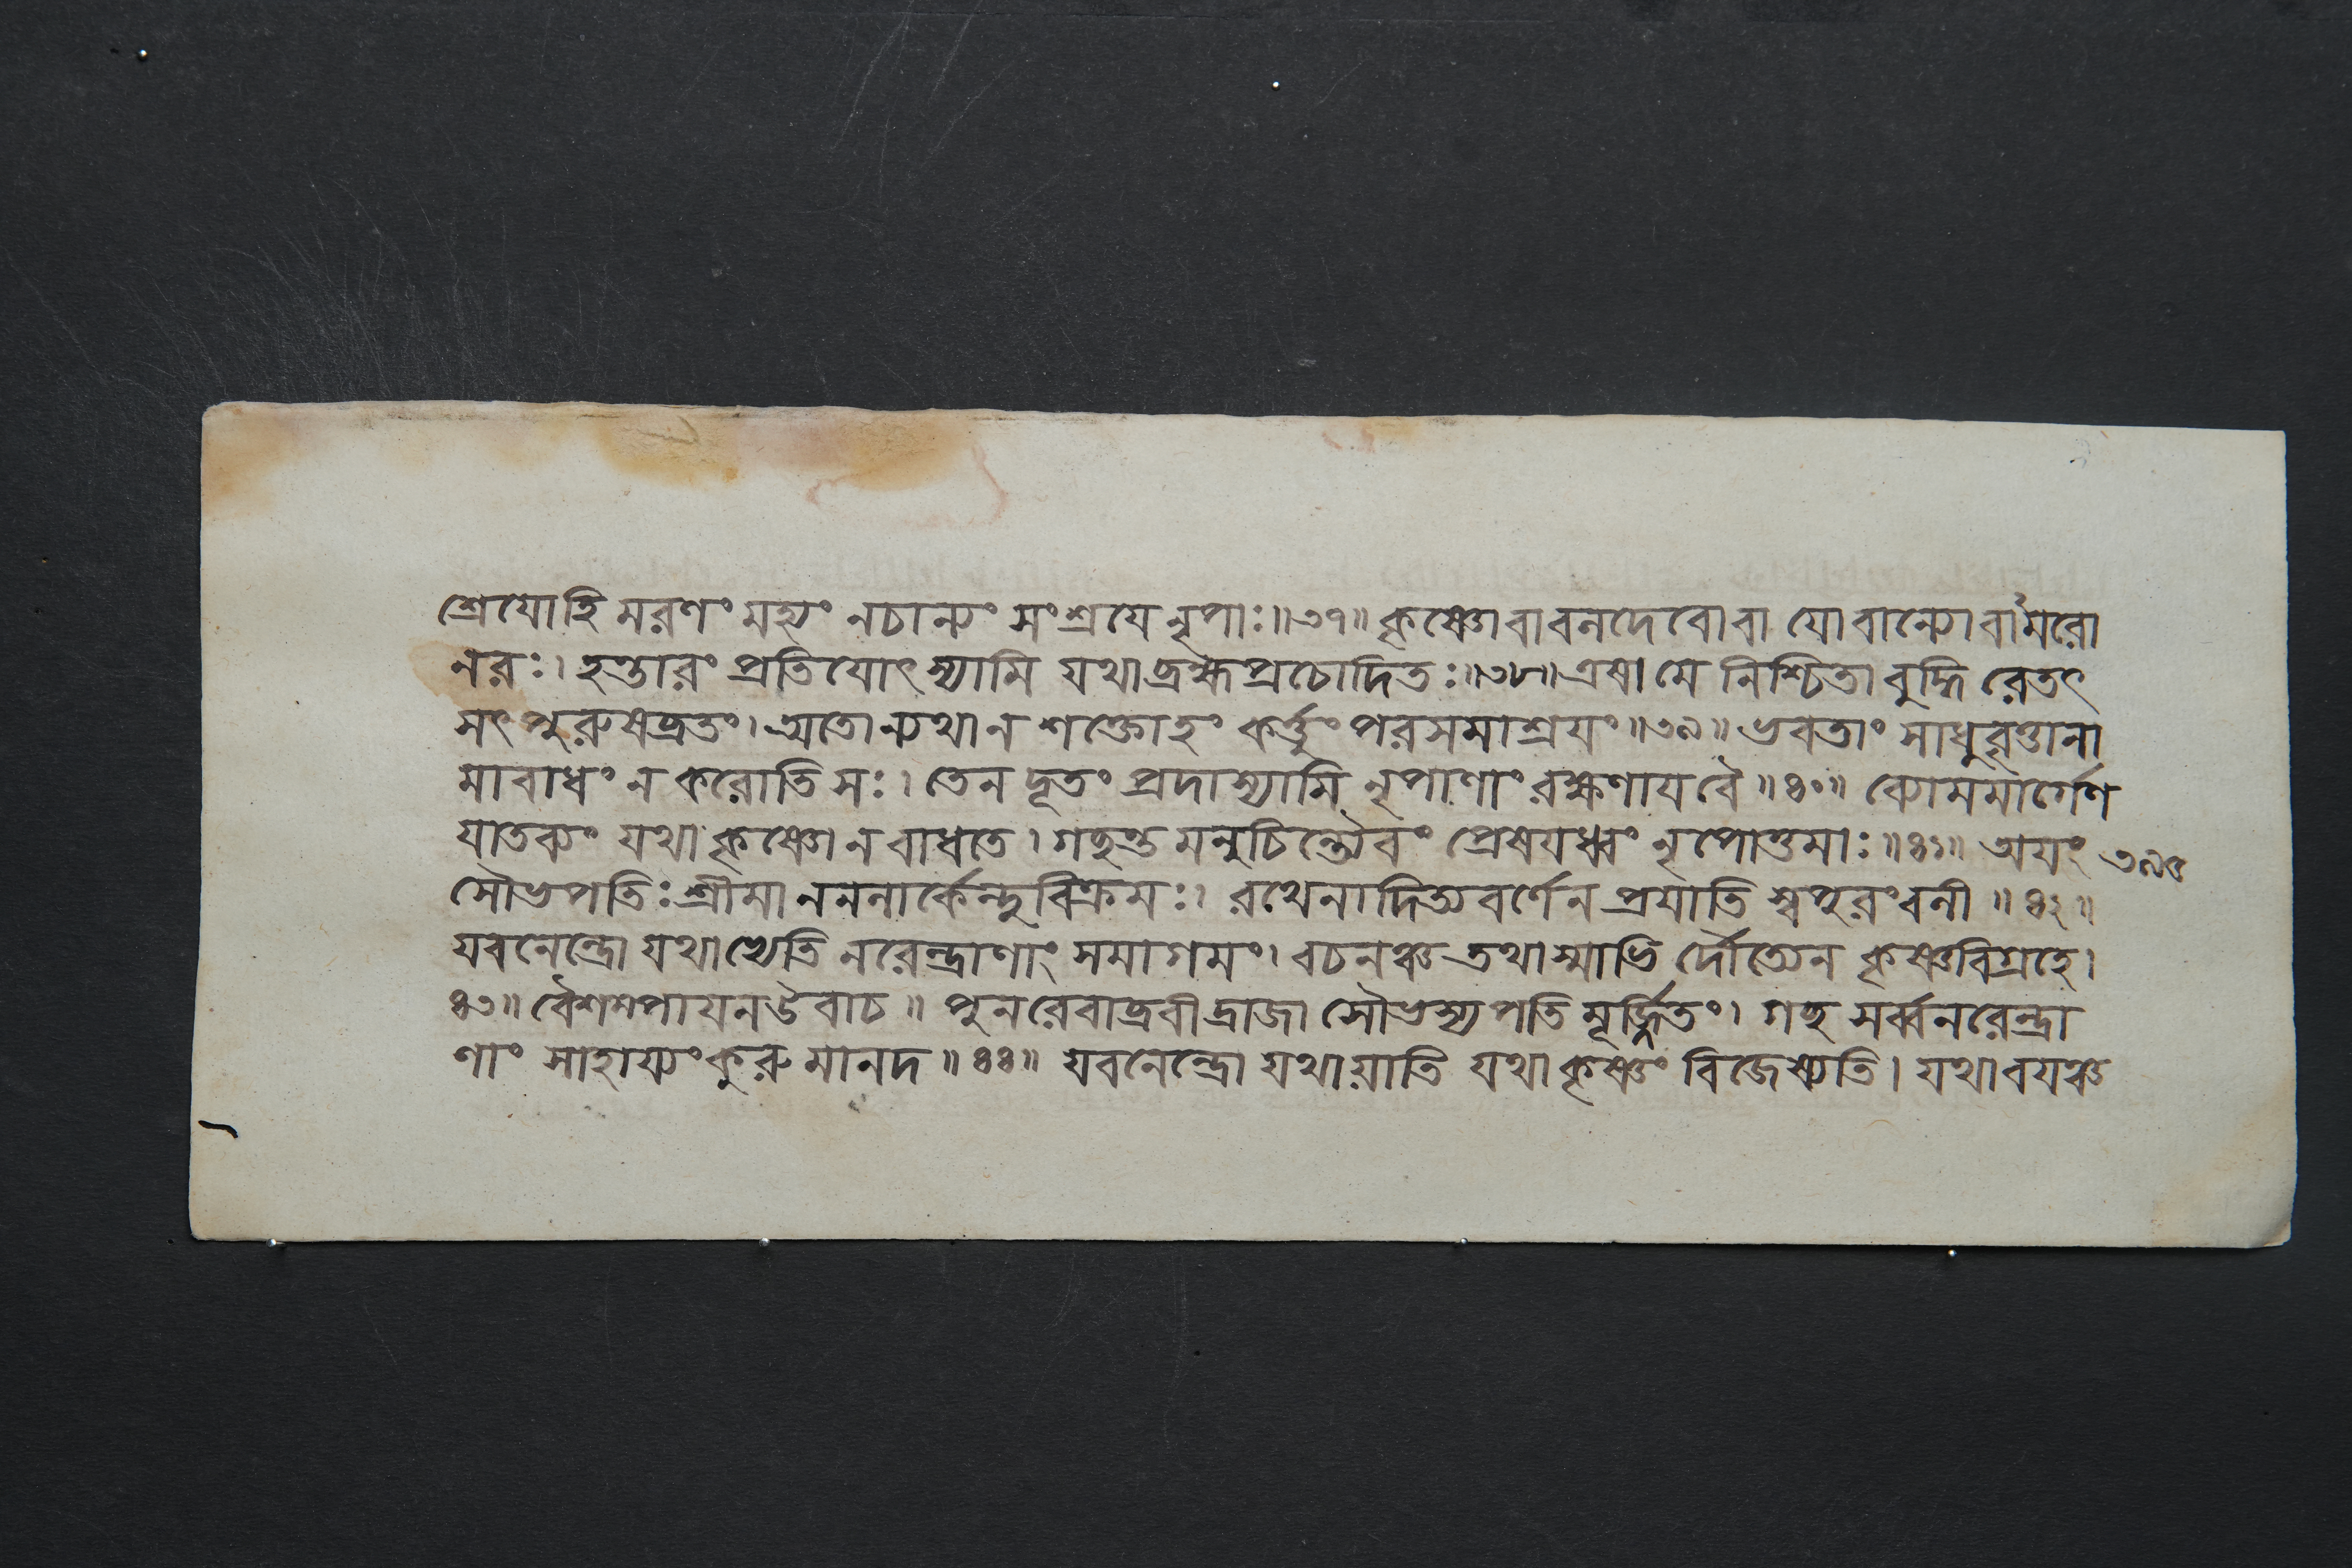 শ্রেযোহি মরণং মহ্যং নচান্যং সংশ্রযে নৃপাঃ॥৩৭॥ কৃষ্ণোবাবনদেবোবা যোবান্যোবামরো
নরঃ। হন্তারং প্রতিযোৎস্যামি যথাব্রহ্মপ্রচোদিতঃ॥৩৮॥ এষা মে নিশ্চিতাবুদ্ধি রেতৎ
সৎপুরুষব্রতং। অতোন্যথান শক্তোহং কর্ত্তুং পরসমাশ্রযং॥৩৯॥ ভবতাং সাধুবৃত্তানা
মাবাধং ন করোতি সঃ। তেন দূতং প্রদাস্যামি নৃপাণাং রক্ষণাযবৈ॥৪০॥ ব্যোমমার্গেণ
যাতব্যং যথা কৃষ্ণোন বাধতে। গচ্ছন্ত মনুচিন্ত্যৈবং প্রেষযধ্বং নৃপোত্তমাঃ॥৪১॥ অযং ৩৯৫
সৌভপতিঃ শ্রীমা নননার্কেন্দুবিক্রমঃ। রথেনাদিত্যবর্ণেন প্রযাতি স্বপুরংবনী॥৪২॥
যবনেন্দ্রো যথাভ্যেতি নরেন্দ্রাণাং সমাগমং। বচনঞ্চ তথাস্মাভি র্দৌত্যেন কৃষ্ণবিগ্রহে।
৪৩॥ বৈশম্পাযনউবাচ॥ পুনরেবাব্রবীদ্রাজা সৌভস্যপতি মূর্জ্জিতং। গচ্ছ সর্ব্বনরেন্দ্রা
ণাং সাহায্যং কুরু মানদ॥৪৪॥ যবনেন্দ্রো যথাযাতি যথা কৃষ্ণং বিজেষ্যতি। যথাবযঞ্চ